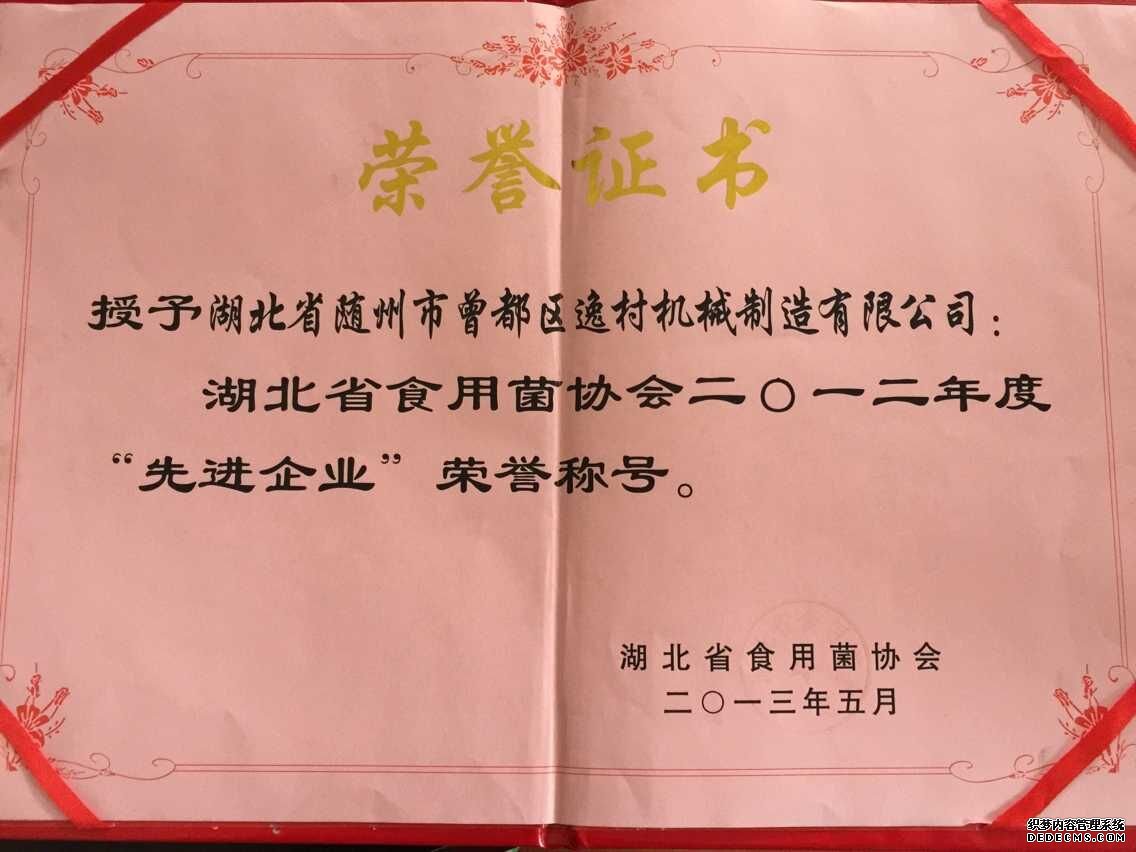 荣誉证书
授予湖北省随州市曾都区逸村机械制造有限公司：
湖北省食用菌协会二〇一二年度
“先进企业”荣誉称号。
湖北省食用菌协会
二〇一三年五月
织梦内容管理系统
DEDECMS.COM